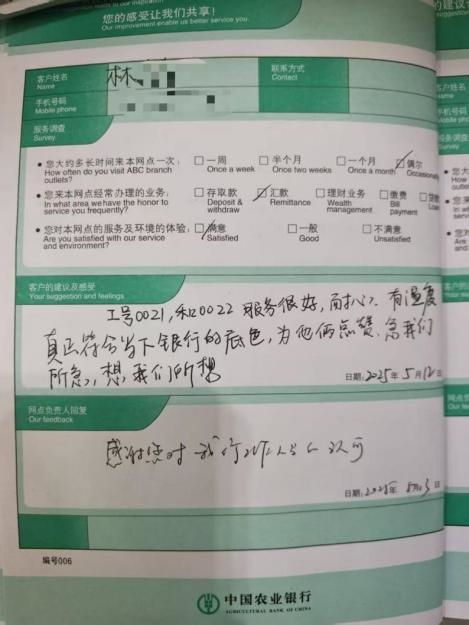 您的感受让我们共享！
Our improvement enable us better service you.
客户姓名
Name
林
联系方式
Contact
手机号码
Mobile phone
服务调查
Survey
• 您大约多长时间来本网点一次： □一周 □半个月 □一个月 ☑偶尔
How often do you visit ABC branch Once a week Once two weeks Once a month Occasionally
outlets?
• 您来本网点经常办理的业务： □存取款 ☑汇款 □理财业务 □缴费 □贷
In what area we have the honor to Deposit & Remittance Wealth Bill
service you frequently? withdraw management payment
• 您对本网点的服务及环境的体验： ☑满意 □一般 □不满意
Are you satisfied with our service Satisfied Good Unsatisfied
and environment?
客户的建议及感受
Your suggestion and feelings
工号0021，和0022服务很好，而 有温度
真正符合当下银行的底色，为他俩点赞、急我们
所急，想我们所想
日期：2025年5月12日
网点负责人回复
Our feedback
感谢您对我行工作人员的认可
日期：2025年5月13日
编号006
中国农业银行
AGRICULTURAL BANK OF CHINA